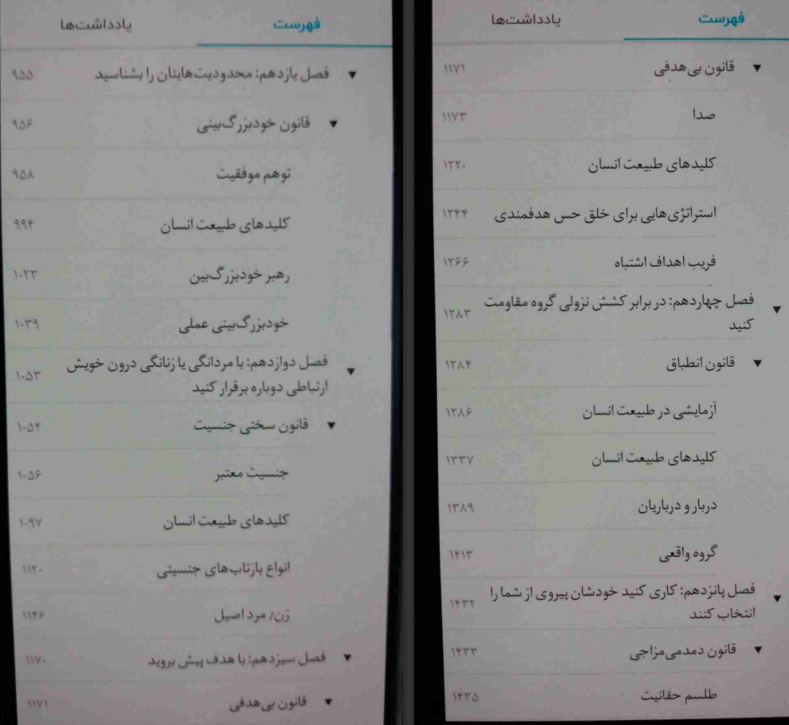 فهرست
یادداشت‌ها
فصل یازدهم: محدودیت‌هایتان را بشناسید
۹۵۵
قانون خودبزرگ‌بینی
۹۵۶
توهم موفقیت
۹۵۸
کلیدهای طبیعت انسان
۹۹۴
رهبر خودبزرگ‌بین
۱۰۲۳
خودبزرگ‌بینی عملی
۱۰۳۹
فصل دوازدهم: با مردانگی یا زنانگی درون خویش
ارتباطی دوباره برقرار کنید
۱۰۵۳
قانون سختی جنسیت
۱۰۵۴
جنسیت معتبر
۱۰۵۶
کلیدهای طبیعت انسان
۱۰۹۷
انواع بازتاب‌های جنسیتی
۱۱۲۰
زن/ مرد اصیل
۱۱۴۶
فصل سیزدهم: با هدف پیش بروید
۱۱۷۰
قانون بی‌هدفی
۱۱۷۱
فهرست
یادداشت‌ها
قانون بی‌هدفی
۱۱۷۱
صدا
۱۱۷۳
کلیدهای طبیعت انسان
۱۲۲۰
استراتژی‌هایی برای خلق حس هدفمندی
۱۲۴۴
فریب اهداف اشتباه
۱۲۶۶
فصل چهاردهم: در برابر کشش نزولی گروه مقاومت
کنید
۱۲۸۳
قانون انطباق
۱۲۸۴
آزمایشی در طبیعت انسان
۱۲۸۶
کلیدهای طبیعت انسان
۱۳۳۷
دربار و درباریان
۱۳۸۹
گروه واقعی
۱۴۱۳
فصل پانزدهم: کاری کنید خودشان پیروی از شما را
انتخاب کنند
۱۴۳۲
قانون دمدمی‌مزاجی
۱۴۳۳
طلسم حقانیت
۱۴۳۵